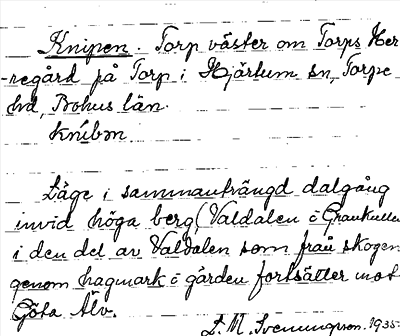 Knipen. Torp väster om Torps Her-
regård på Torp i Hjärtum sn, Torpe
hd, Bohus län.
knibən
Läge i sammanträngd dalgång
invid höga berg, (Valdalen o Grankullen
i den del av Valdalen som från skogen
genom hagmark o gården fortsätter mot
Göta Älv.
L. M. Svenungson. 1935